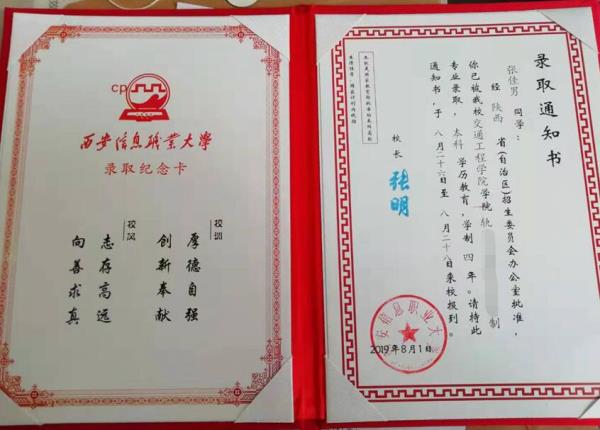 CP
西安信息職業大学
录取纪念卡
校训
厚德自强
创新奉献
校风
志存高远
向善求真
录取通知书
张佳男 同学：
经 陕西 省(自治区)招生委员会办公室批准，
你已被我校交通工程学院学院 轨 制
专业录取，本科 学历教育，学制 四 年。请持此
通知书，于 八月二十六日至 八月二十八日来校报到。
校长 张明
安信息职业大
2019年8月1日